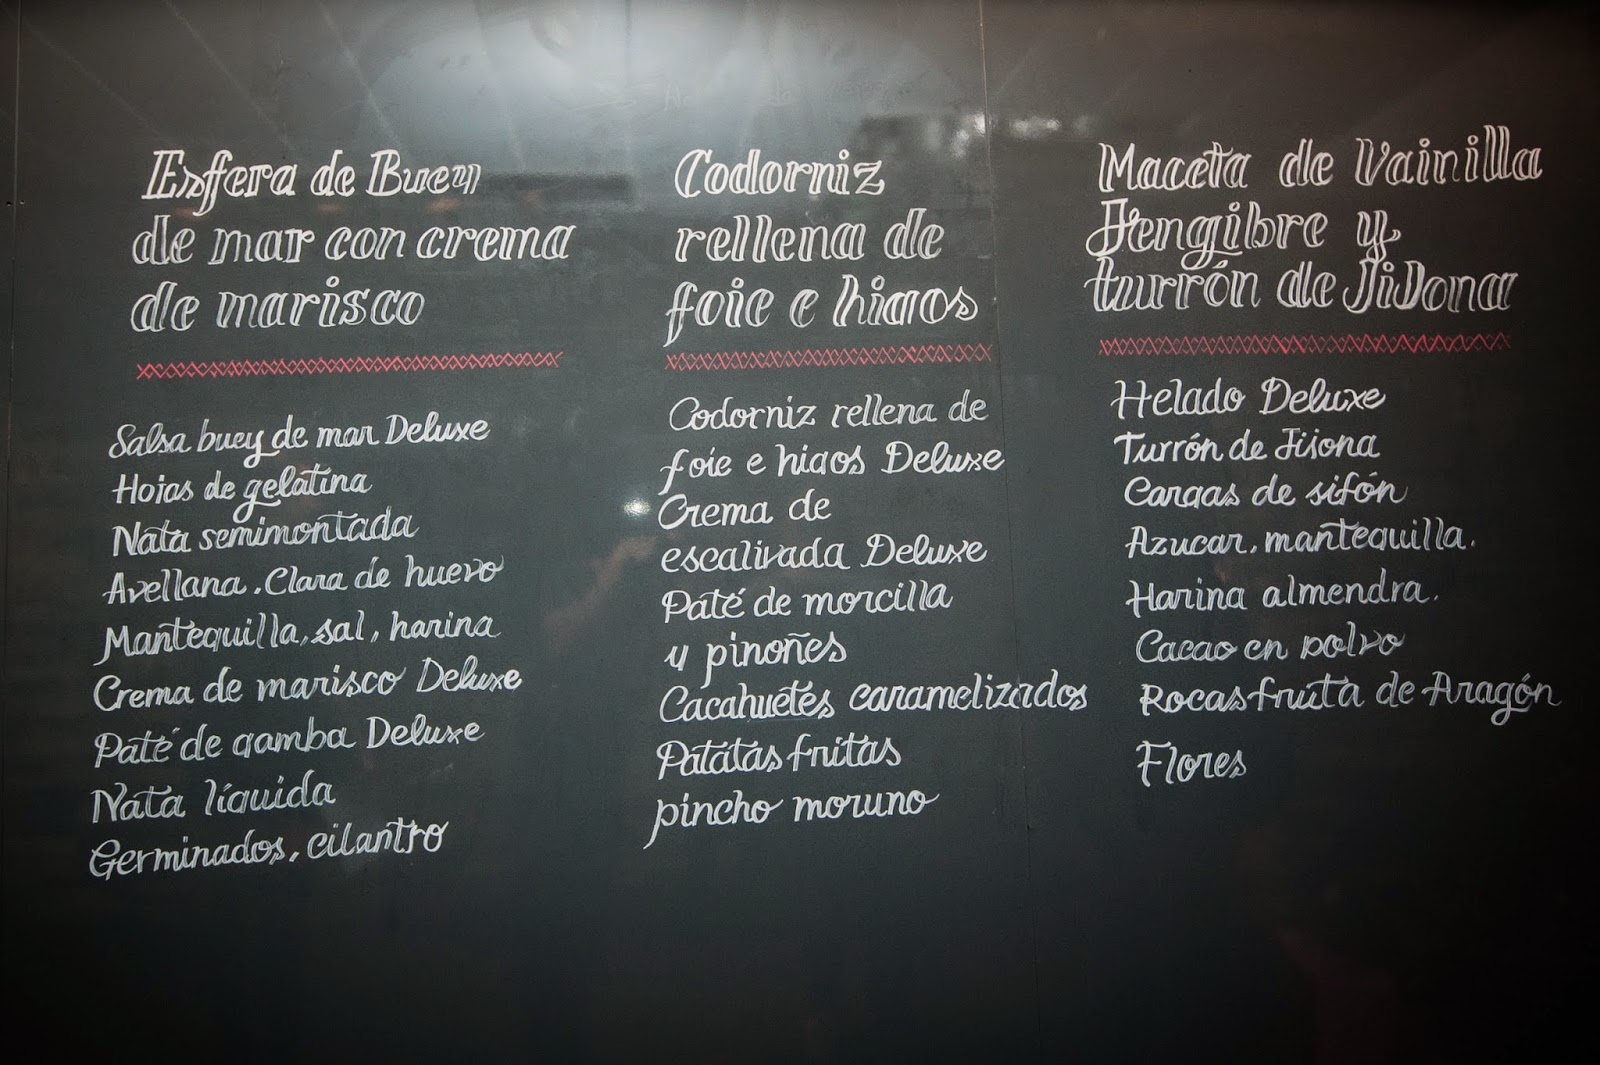 Esfera de Buey
de mar con crema
de marisco
Salsa buey de mar Deluxe
Hojas de gelatina
Nata semimontada
Avellana. Clara de huevo
Mantequilla, sal, harina
Crema de marisco Deluxe
Paté de gamba Deluxe
Nata líquida
Germinados, cilantro
Codorniz
rellena de
foie e higos
Codorniz rellena de
foie e higos Deluxe
Crema de
escalivada Deluxe
Paté de morcilla
y pinoñes
Cacahuetes caramelizados
Patatas fritas
pincho moruno
Maceta de Vainilla
Jengibre y
turrón de JiJona
Helado Deluxe
Turrón de Jijona
Cargas de sifón
Azucar, mantequilla.
Harina almendra.
Cacao en polvo
Rocas fruta de Aragón
Flores